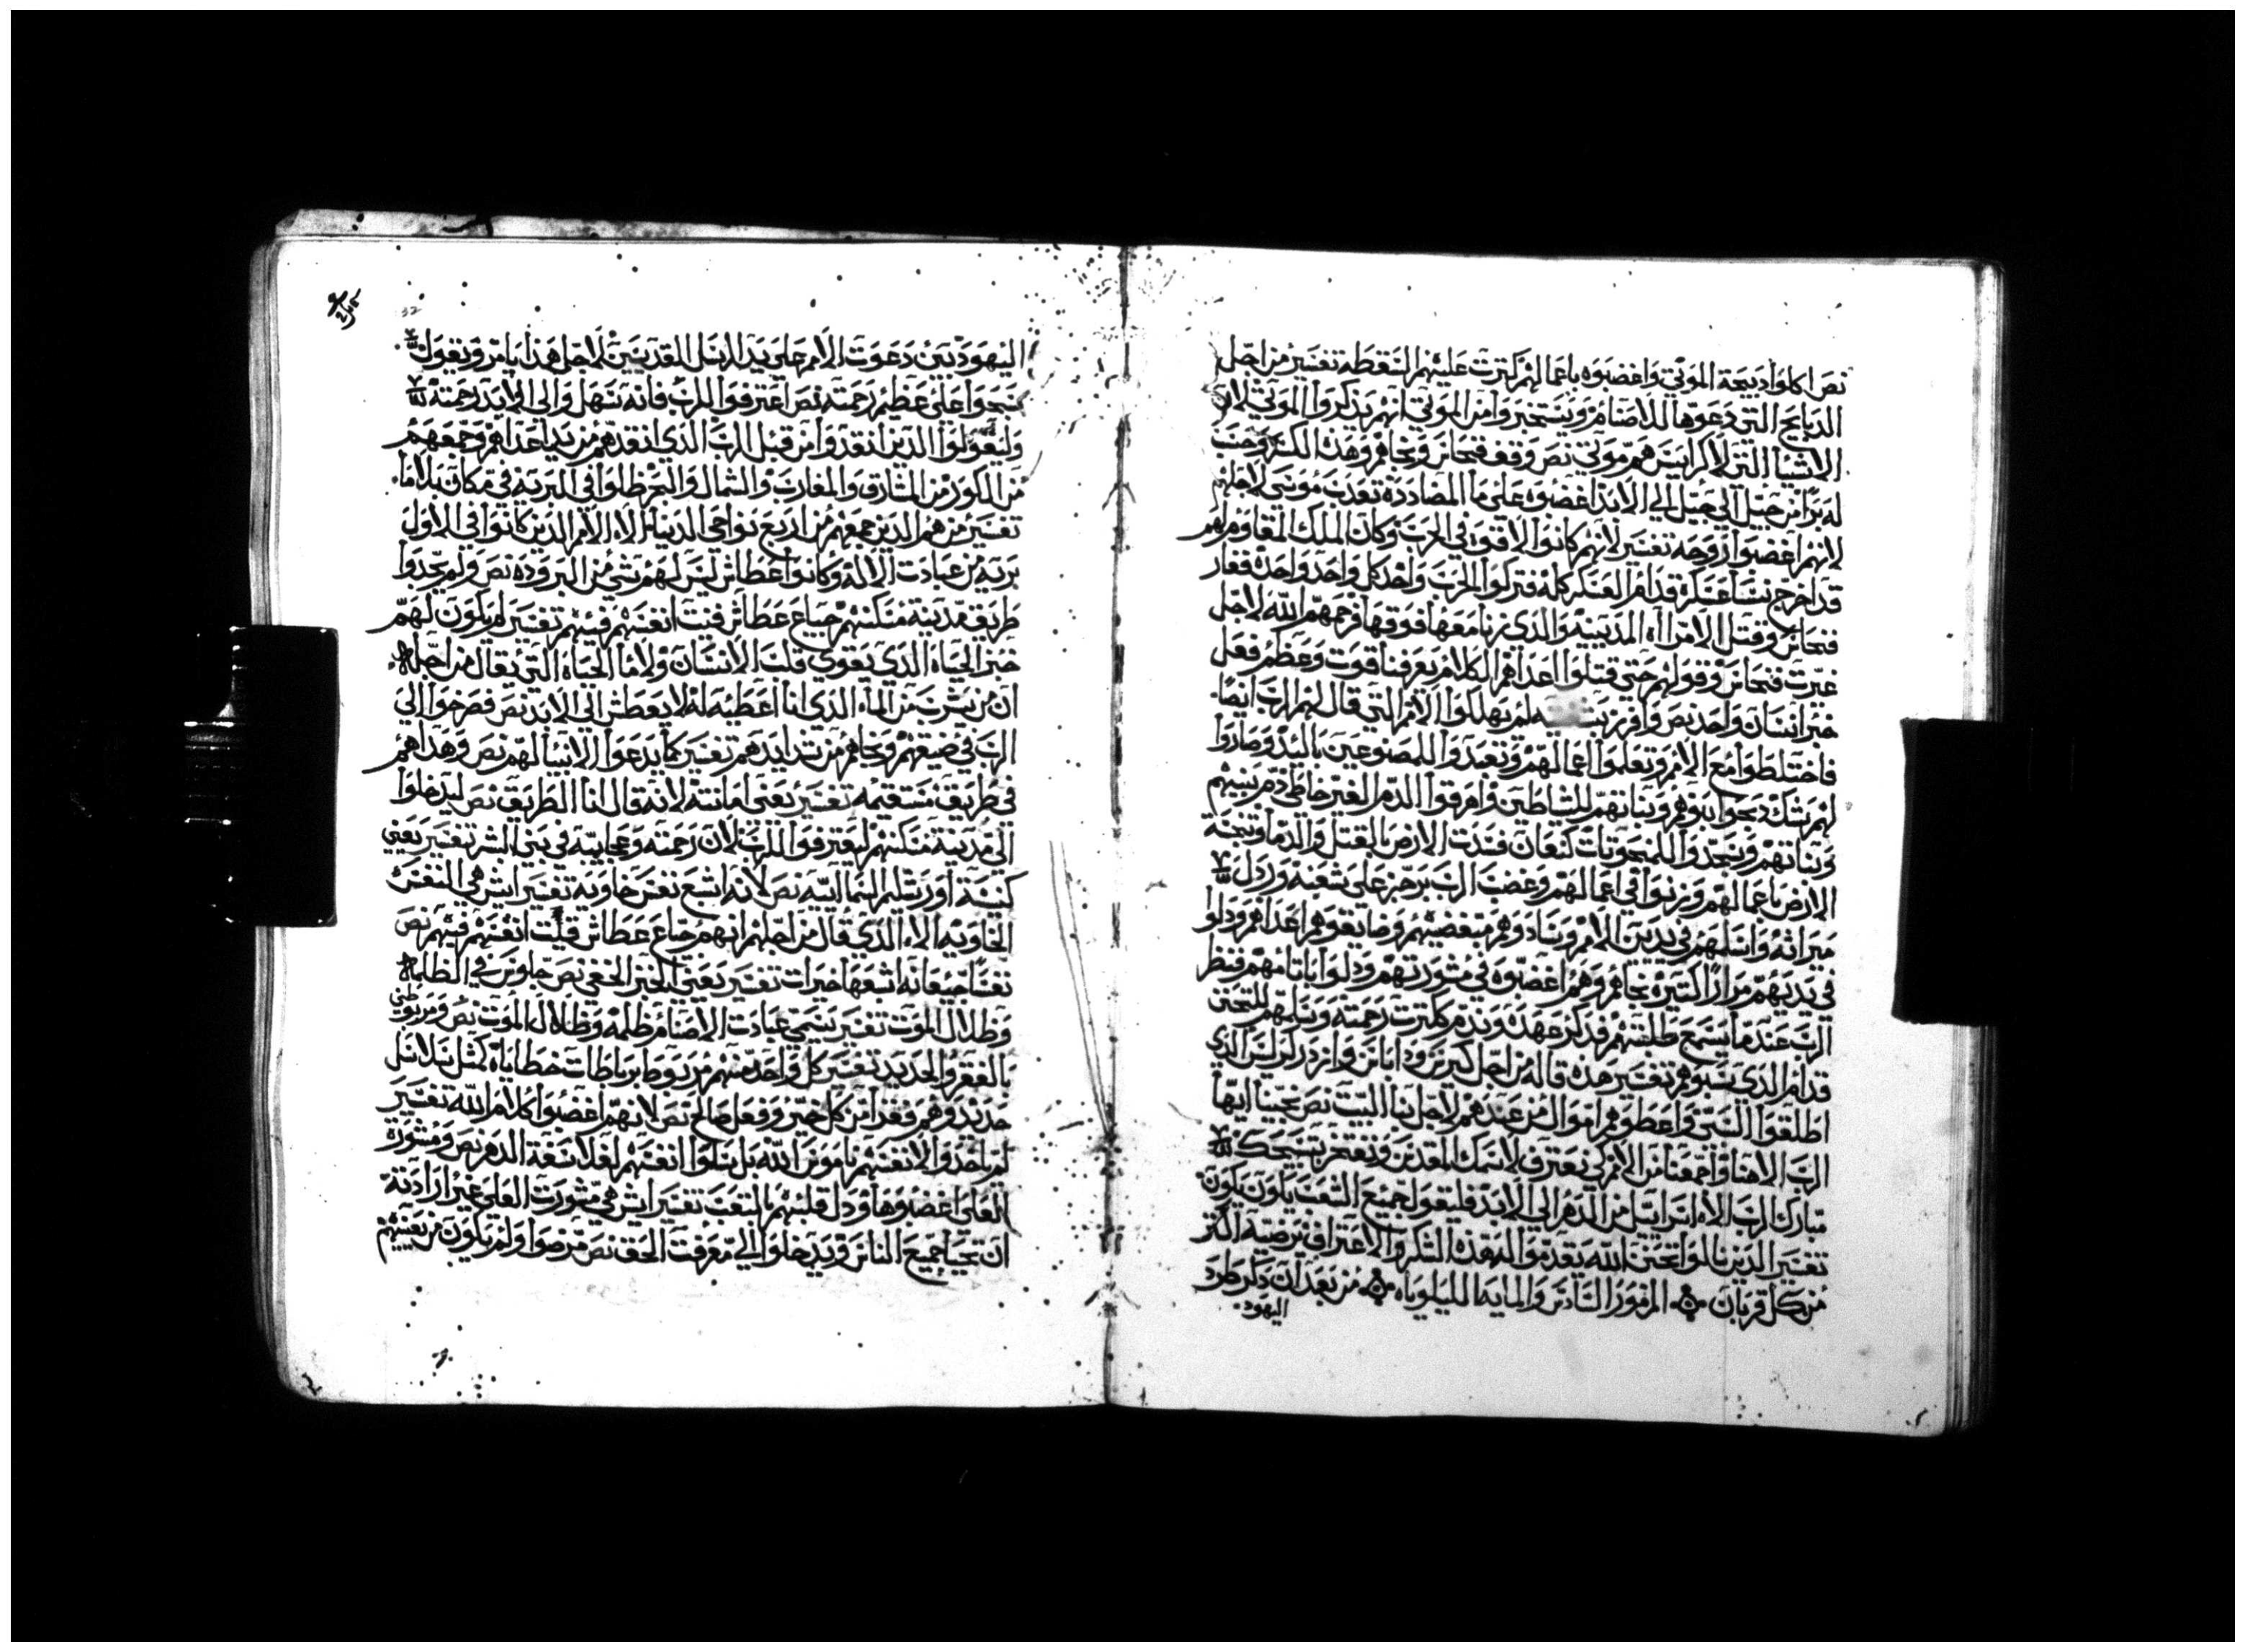 نص اكلوا دبيحة الموتي واغضبوه باعمالهم كترت عليهم السقطه تفسير من اجل
الدبايح التي دعوها للاصنام ويستخبروا من الموتي انهم يذكروا الموتي لان
الاشيا التي لاكرايس هم موتي نص وقف فنحاس ونجاهم وهذه الكسره وحسب
له برا من جيل الي جيل الي الابد اغضبوه علي ما المضادده تعدب موسي لاجلهم
لانهم اغضبوا روحه تفسير لانهم كانوا الاقوي في الحرب وكان الملك المقاوم لهم
قد اخرج نسا عسكره قدام العسكر كله فتركوا الحرب واخد كل واحد واحده فغار
فنحاس وقتل الامراه المدينيه والذي زنا معها فوقها فرحمهم الله لاجل
غيرت فنحاس وقولهم حتي قتلوا اعداهم الكلام يعرفنا قوت وعظم فعل
خير انسان واحد نص وافرز لم يهلكوا الامم التي قال لهم الرب ايضا
فاختلطوا مع الامم وتعلموا اعمالهم وتعبدوا للمصنوعين باليد وصاروا
لهم شك دبحوا بنوهم وبناتهم للشياطين واهرقوا الدم الغير خاطي دم بنيهم
وبناتهم ويسجدوا للمنحوتات كنعان فسدت الارض بالقتل والدما ونجسة
الارض باعمالهم وزنوا في اعمالهم وغضب الرب برجز علي شعبه وردل
ميراثه واسلمهم في يدين الامم وسادوهم مبغضيهم وضايقوهم اعداهم ودلوا
في يديهم مرارا كتيره نجاهم وهم اغضبوه في مشورتهم ودلوا باتامهم فنظر
الرب عندما يسمع طلبتهم فدكر عهده وندم ككترت رحمته وسلمهم للتحنن
قدام الذي سبوهم تفسير هذه قاله من اجل كيرس وداناس وازدرلس الذي
اطلقوا السبي واعطوهم اموال من عندهم لاجل بنا البيت نص نجينا ايها
الرب الاهنا واجمعنا من الامم كي نعترف لاسمك المقدس ونفتخر بتسبحتك
تبارك الرب الاه اسراييل من الدهر الي الابد فليقول جميع الشعب يكون يكون
تفسير الدين نالوا تحنن الله يقدموا له هذه الشكر والاعتراف ترضيه اكتر
من كل قربان المزمور السادس والمايه الليلوياه من بعد ان دكر طرد
اليهود
اليهود بين دعوت الامم علي يد الرسل القديسين لاجل هذا يامر ويقول
سبحوا علي عظيم رحمته نص اعترفوا للرب فانه سهل والي الابد رحمته
وليقولوا الدين انقدوا من قبل الرب الدي انقدهم من يد اعداهم وجمعهم
من الكور من المشارق والمغارب والشمال والبحر ظلوا في البريه في مكان بلا ما
تفسير من هم الدين جمعهم من اربع نواحي الدنيا الا الامم الدين كانوا في الاول
بريه من عبادت الاله وكانوا عطاش ليس لهم شي من البروده نص ولم يجدوا
طريق مدينه مسكنهم جياع عطاش فنيت انفسهم فيهم تفسير لم يكون لهم
خبز الحياه الدي يقوي قلب الانسان ولا ما الحياه التي يقال من اجله
ان من يشرب من الماء الدي انا اعطيه له لا يعطش الي الابد نص فصرخوا الي
الرب في ضيقهم ونجاهم من شدايدهم تفسير كما يدعوا الانبيا لهم نص وهداهم
في طريق مستقيمه تفسير يعني امانته لانه قال انا الطريق نص ليدخلوا
الي مدينه مسكنهم ليعترفوا للرب لان رحمته وعجايبه في بني البشر تفسير يعني
كنيسة اورشليم السماييه نص لانه اشبع نفس خاويه تفسير ايش هي النفس
الخاويه الا الدي قال من اجلهم انهم جياع عطاش فنيت انفسهم فيهم نص
نفسا جيعانه اشبعها خيرات تفسير يعني الخبز الحقي نص جلوس في الظلمه
وظلال الموت تفسير يسمي عبادت الاصنام ظلمه وظلال الموت نص ومربوطين
بالفقر والحديد تفسير كل واحد منهم مربوط برباطات خطاياه كمثل سلاسل
حديد وهم فقرا من كل خير وفعل صالح نص لانهم اغضبوا كلام الله تفسير
لم ياخدوا لانفسهم ناموس الله بل سلوا انفسهم لفلاسفة الدهر نص ومشورة
العلي اغضبوها ودل قلبهم بالتعب تفسير ايش هي مشورت العلي غير ارادته
ان تحيا جميع الناس ويدخلوا الي معرفت الحق نص مرضوا ولم يكون من يعينهم